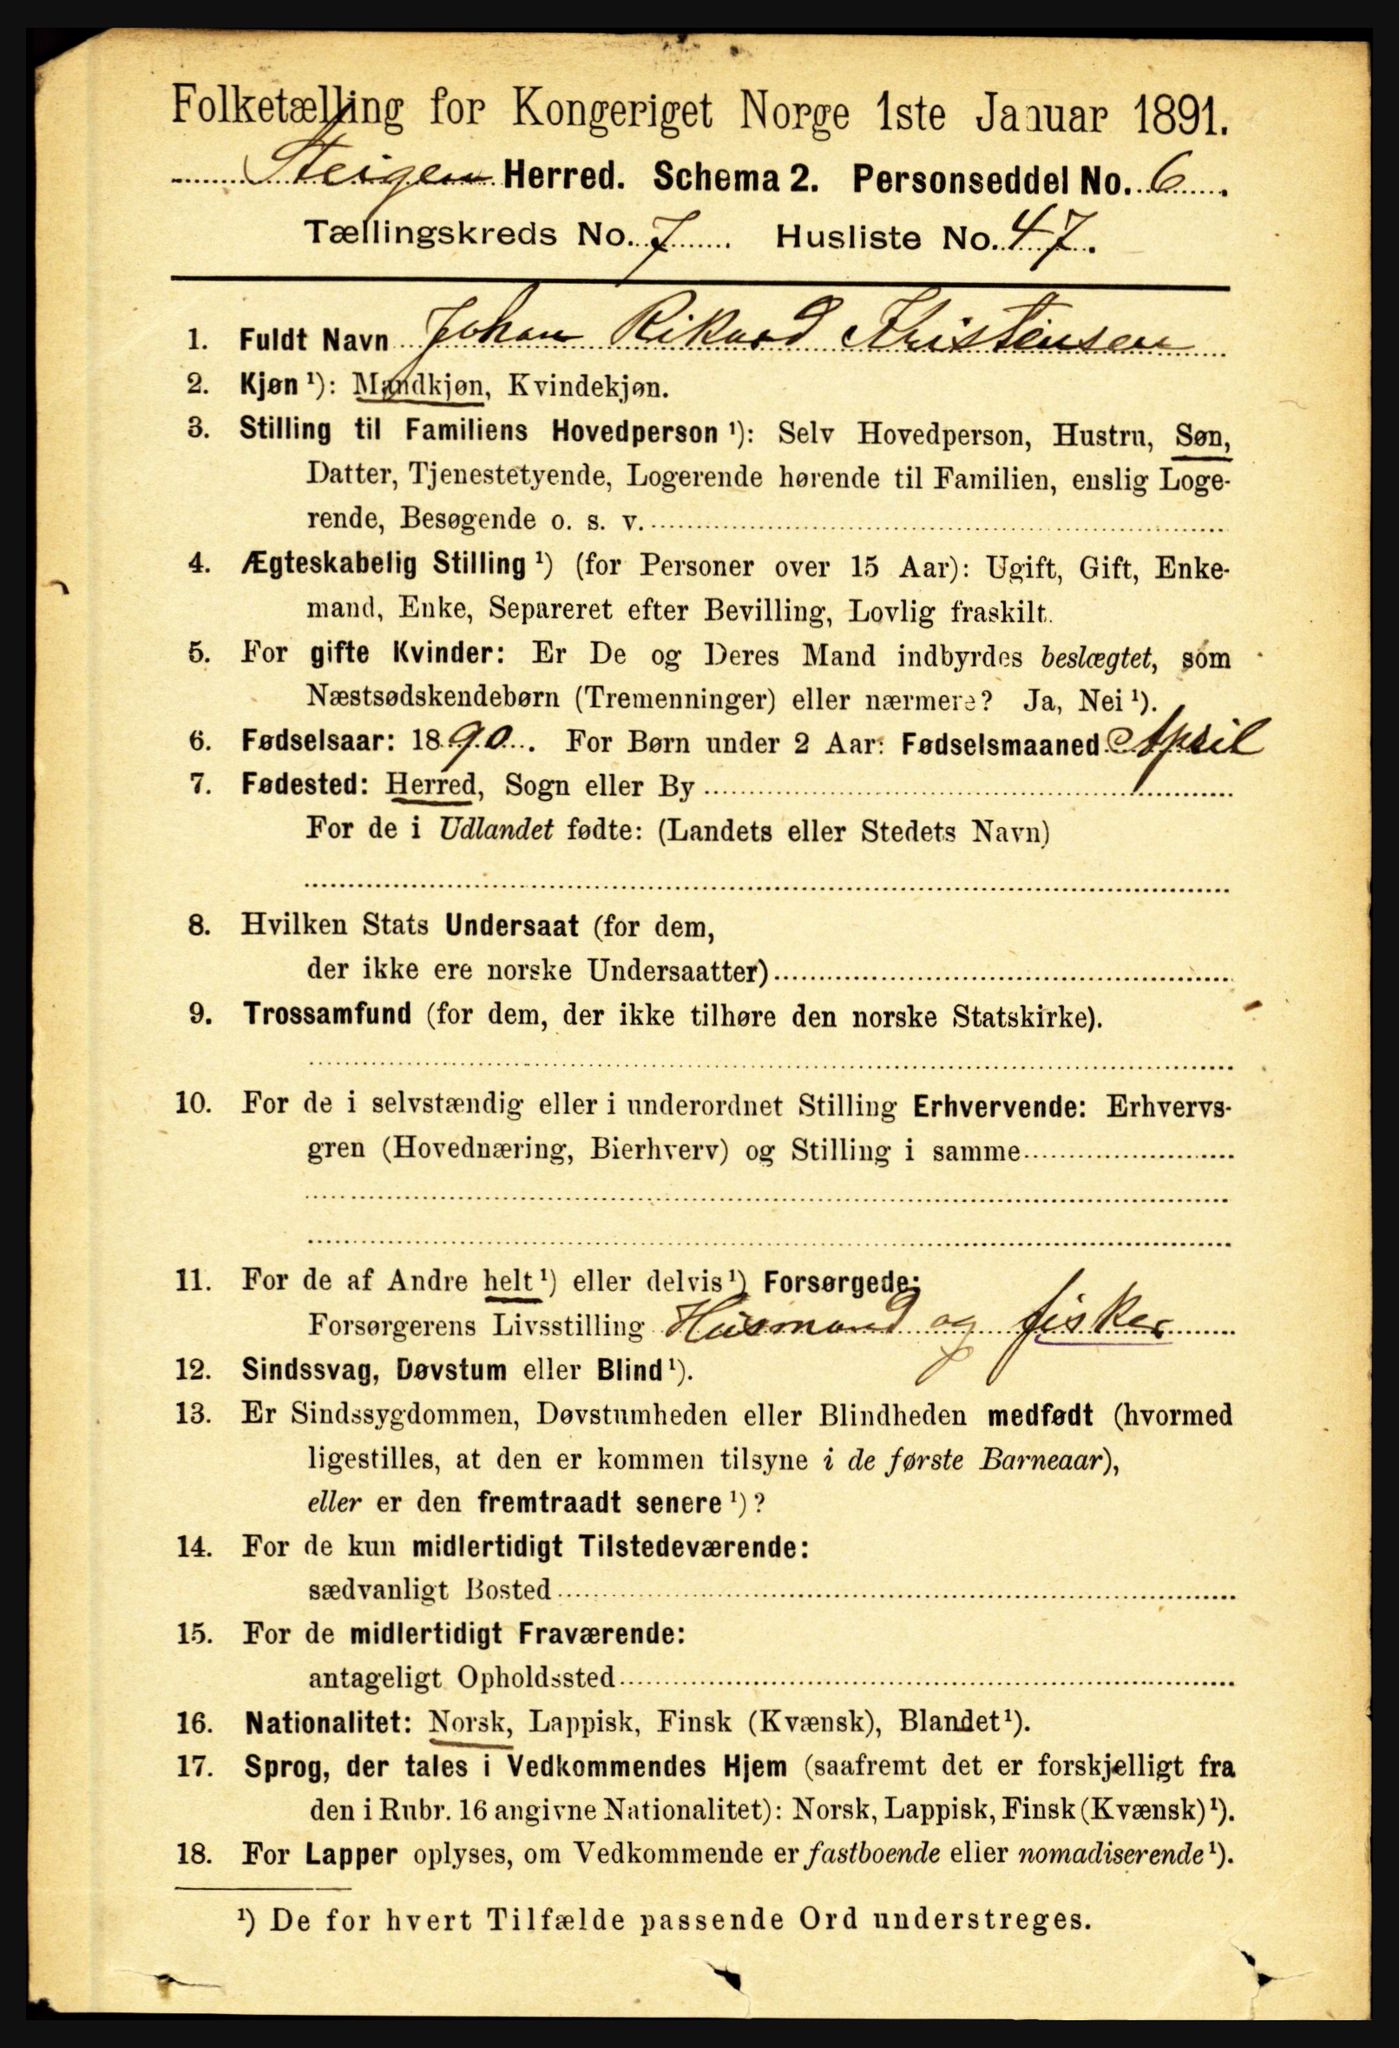 Folketælling for Kongeriget Norge 1ste Januar 1891.
Steigen Herred. Schema 2. Personseddel No. 6.
Tællingskreds No. 7. Husliste No. 47.
1. Fuldt Navn Johan Rikard Kristensen
2. Kjøn ¹): Mandkjøn, Kvindekjøn.
3. Stilling til Familiens Hovedperson ¹): Selv Hovedperson, Hustru, Søn,
Datter, Tjenestetyende, Logerende hørende til Familien, enslig Loge-
rende, Besøgende o. s. v.
4. Ægteskabelig Stilling ¹) (for Personer over 15 Aar): Ugift, Gift, Enke-
mand, Enke, Separeret efter Bevilling, Lovlig fraskilt.
5. For gifte Kvinder: Er De og Deres Mand indbyrdes beslægtet, som
Næstsødskendebørn (Tremenninger) eller nærmere? Ja, Nei ¹).
6. Fødselsaar: 1890. For Børn under 2 Aar: Fødselsmaaned April
7. Fødested: Herred, Sogn eller By
For de i Udlandet fødte: (Landets eller Stedets Navn)
8. Hvilken Stats Undersaat (for dem,
der ikke ere norske Undersaatter)
9. Trossamfund (for dem, der ikke tilhøre den norske Statskirke).
10. For de i selvstændig eller i underordnet Stilling Erhvervende: Erhvervs-
gren (Hovednæring, Bierhverv) og Stilling i samme
11. For de af Andre helt ¹) eller delvis ¹) Forsørgede:
Forsørgerens Livsstilling Husmand og fisker
12. Sindssvag, Døvstum eller Blind ¹).
13. Er Sindssygdommen, Døvstumheden eller Blindheden medfødt (hvormed
ligestilles, at den er kommen tilsyne i de første Barneaar),
eller er den fremtraadt senere ¹)?
14. For de kun midlertidigt Tilstedeværende:
sædvanligt Bosted
15. For de midlertidigt Fraværende:
antageligt Opholdssted
16. Nationalitet: Norsk, Lappisk, Finsk (Kvænsk), Blandet ¹).
17. Sprog, der tales i Vedkommendes Hjem (saafremt det er forskjelligt fra
den i Rubr. 16 angivne Nationalitet): Norsk, Lappisk, Finsk (Kvænsk) ¹).
18. For Lapper oplyses, om Vedkommende er fastboende eller nomadiserende ¹).
¹) De for hvert Tilfælde passende Ord understreges.